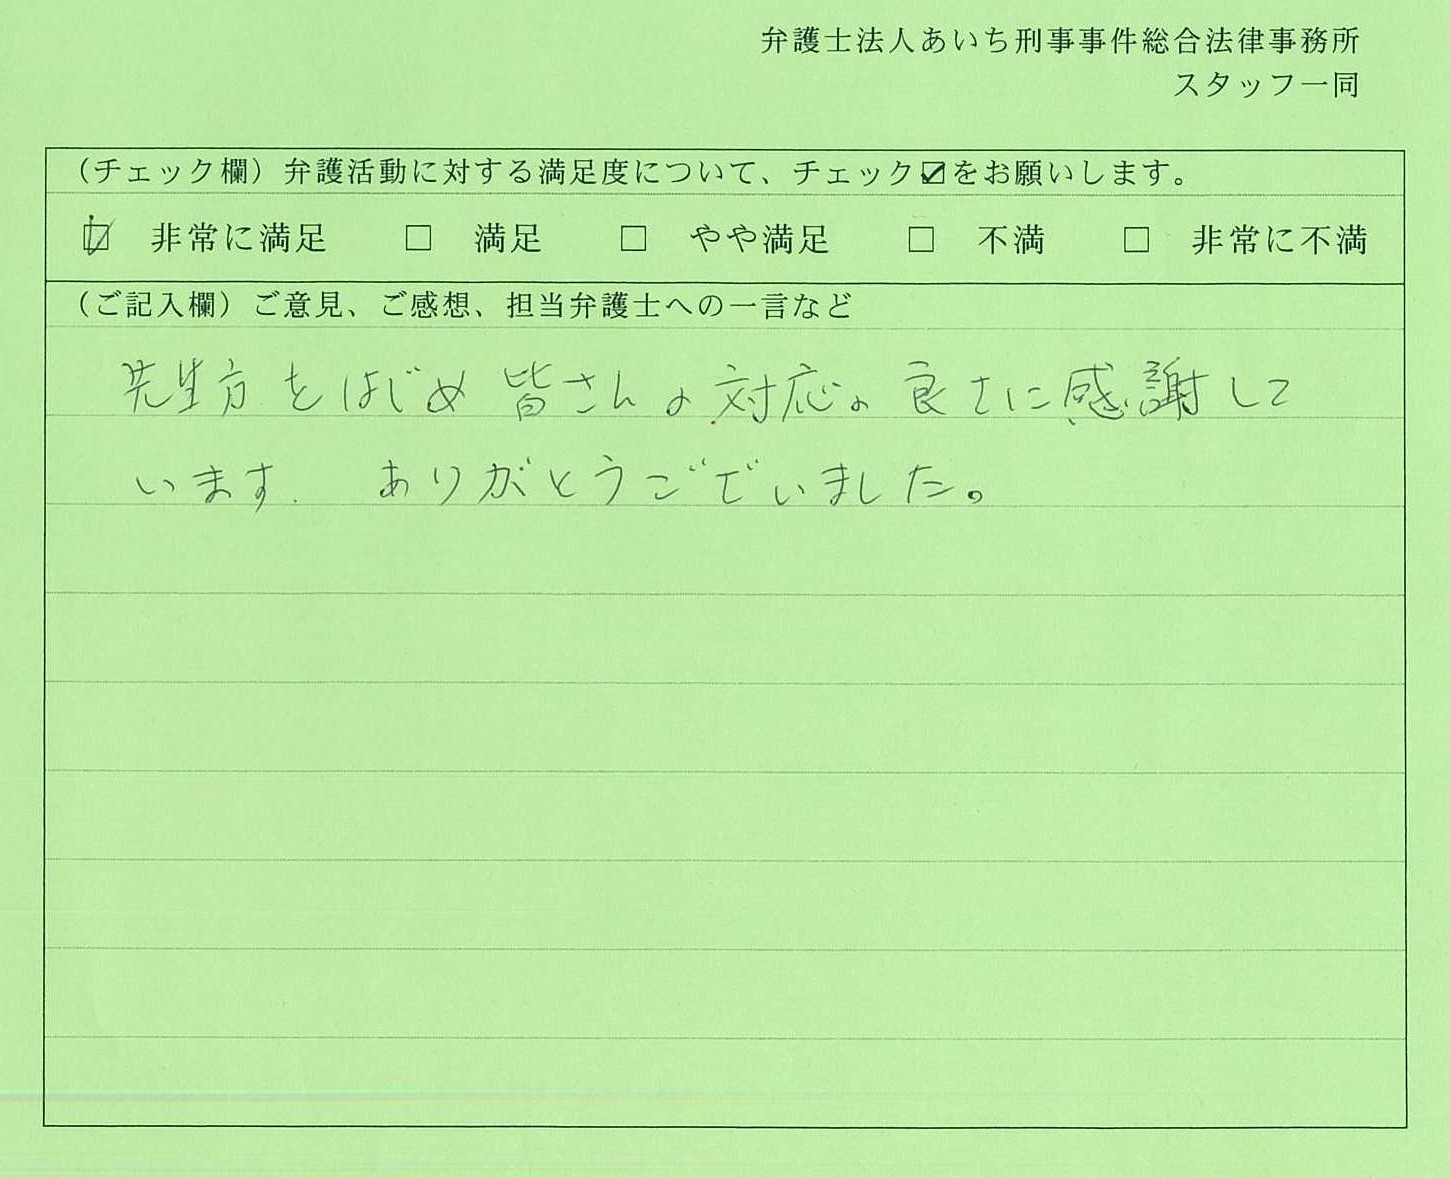 弁護士法人あいち刑事事件総合法律事務所
スタッフ一同
（チェック欄）弁護活動に対する満足度について、チェック☑をお願いします。
☑ 非常に満足 □ 満足 □ やや満足 □ 不満 □ 非常に不満
（ご記入欄）ご意見、ご感想、担当弁護士への一言など
先生方をはじめ皆さんの対応の良さに感謝して
います. ありがとうございました。